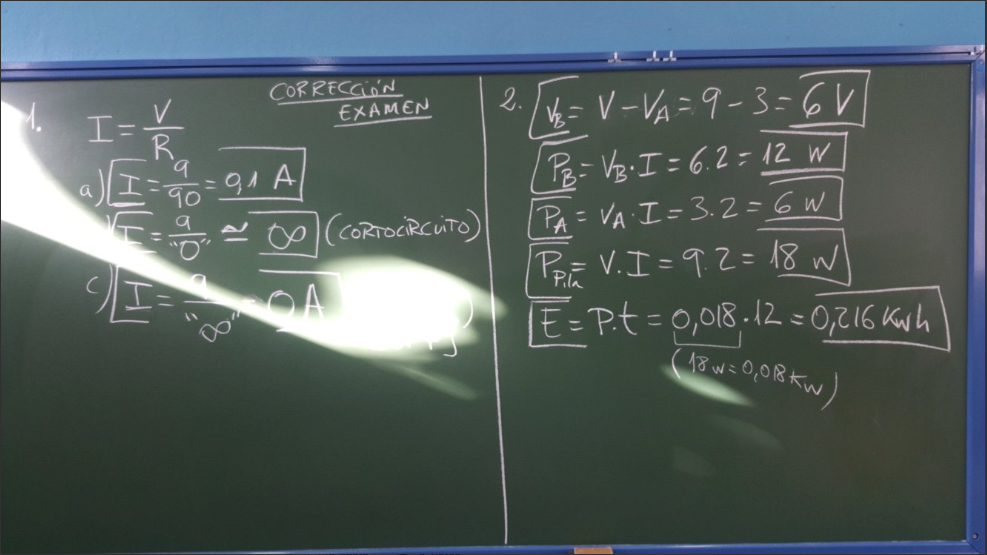 CORRECCIÓN
EXAMEN
1.
I = V/R
a) I = 9/90 = 0,1 A
) I = 9/"0" ≃ ∞ (CORTOCIRCUITO)
c) I = 9/"∞" = 0 A
2. V_B = V - V_A = 9 - 3 = 6 V
P_B = V_B · I = 6 · 2 = 12 W
P_A = V_A · I = 3 · 2 = 6 W
P_Pila = V · I = 9 · 2 = 18 W
E = P · t = 0,018 · 12 = 0,216 Kwh
(18w = 0,018 Kw)